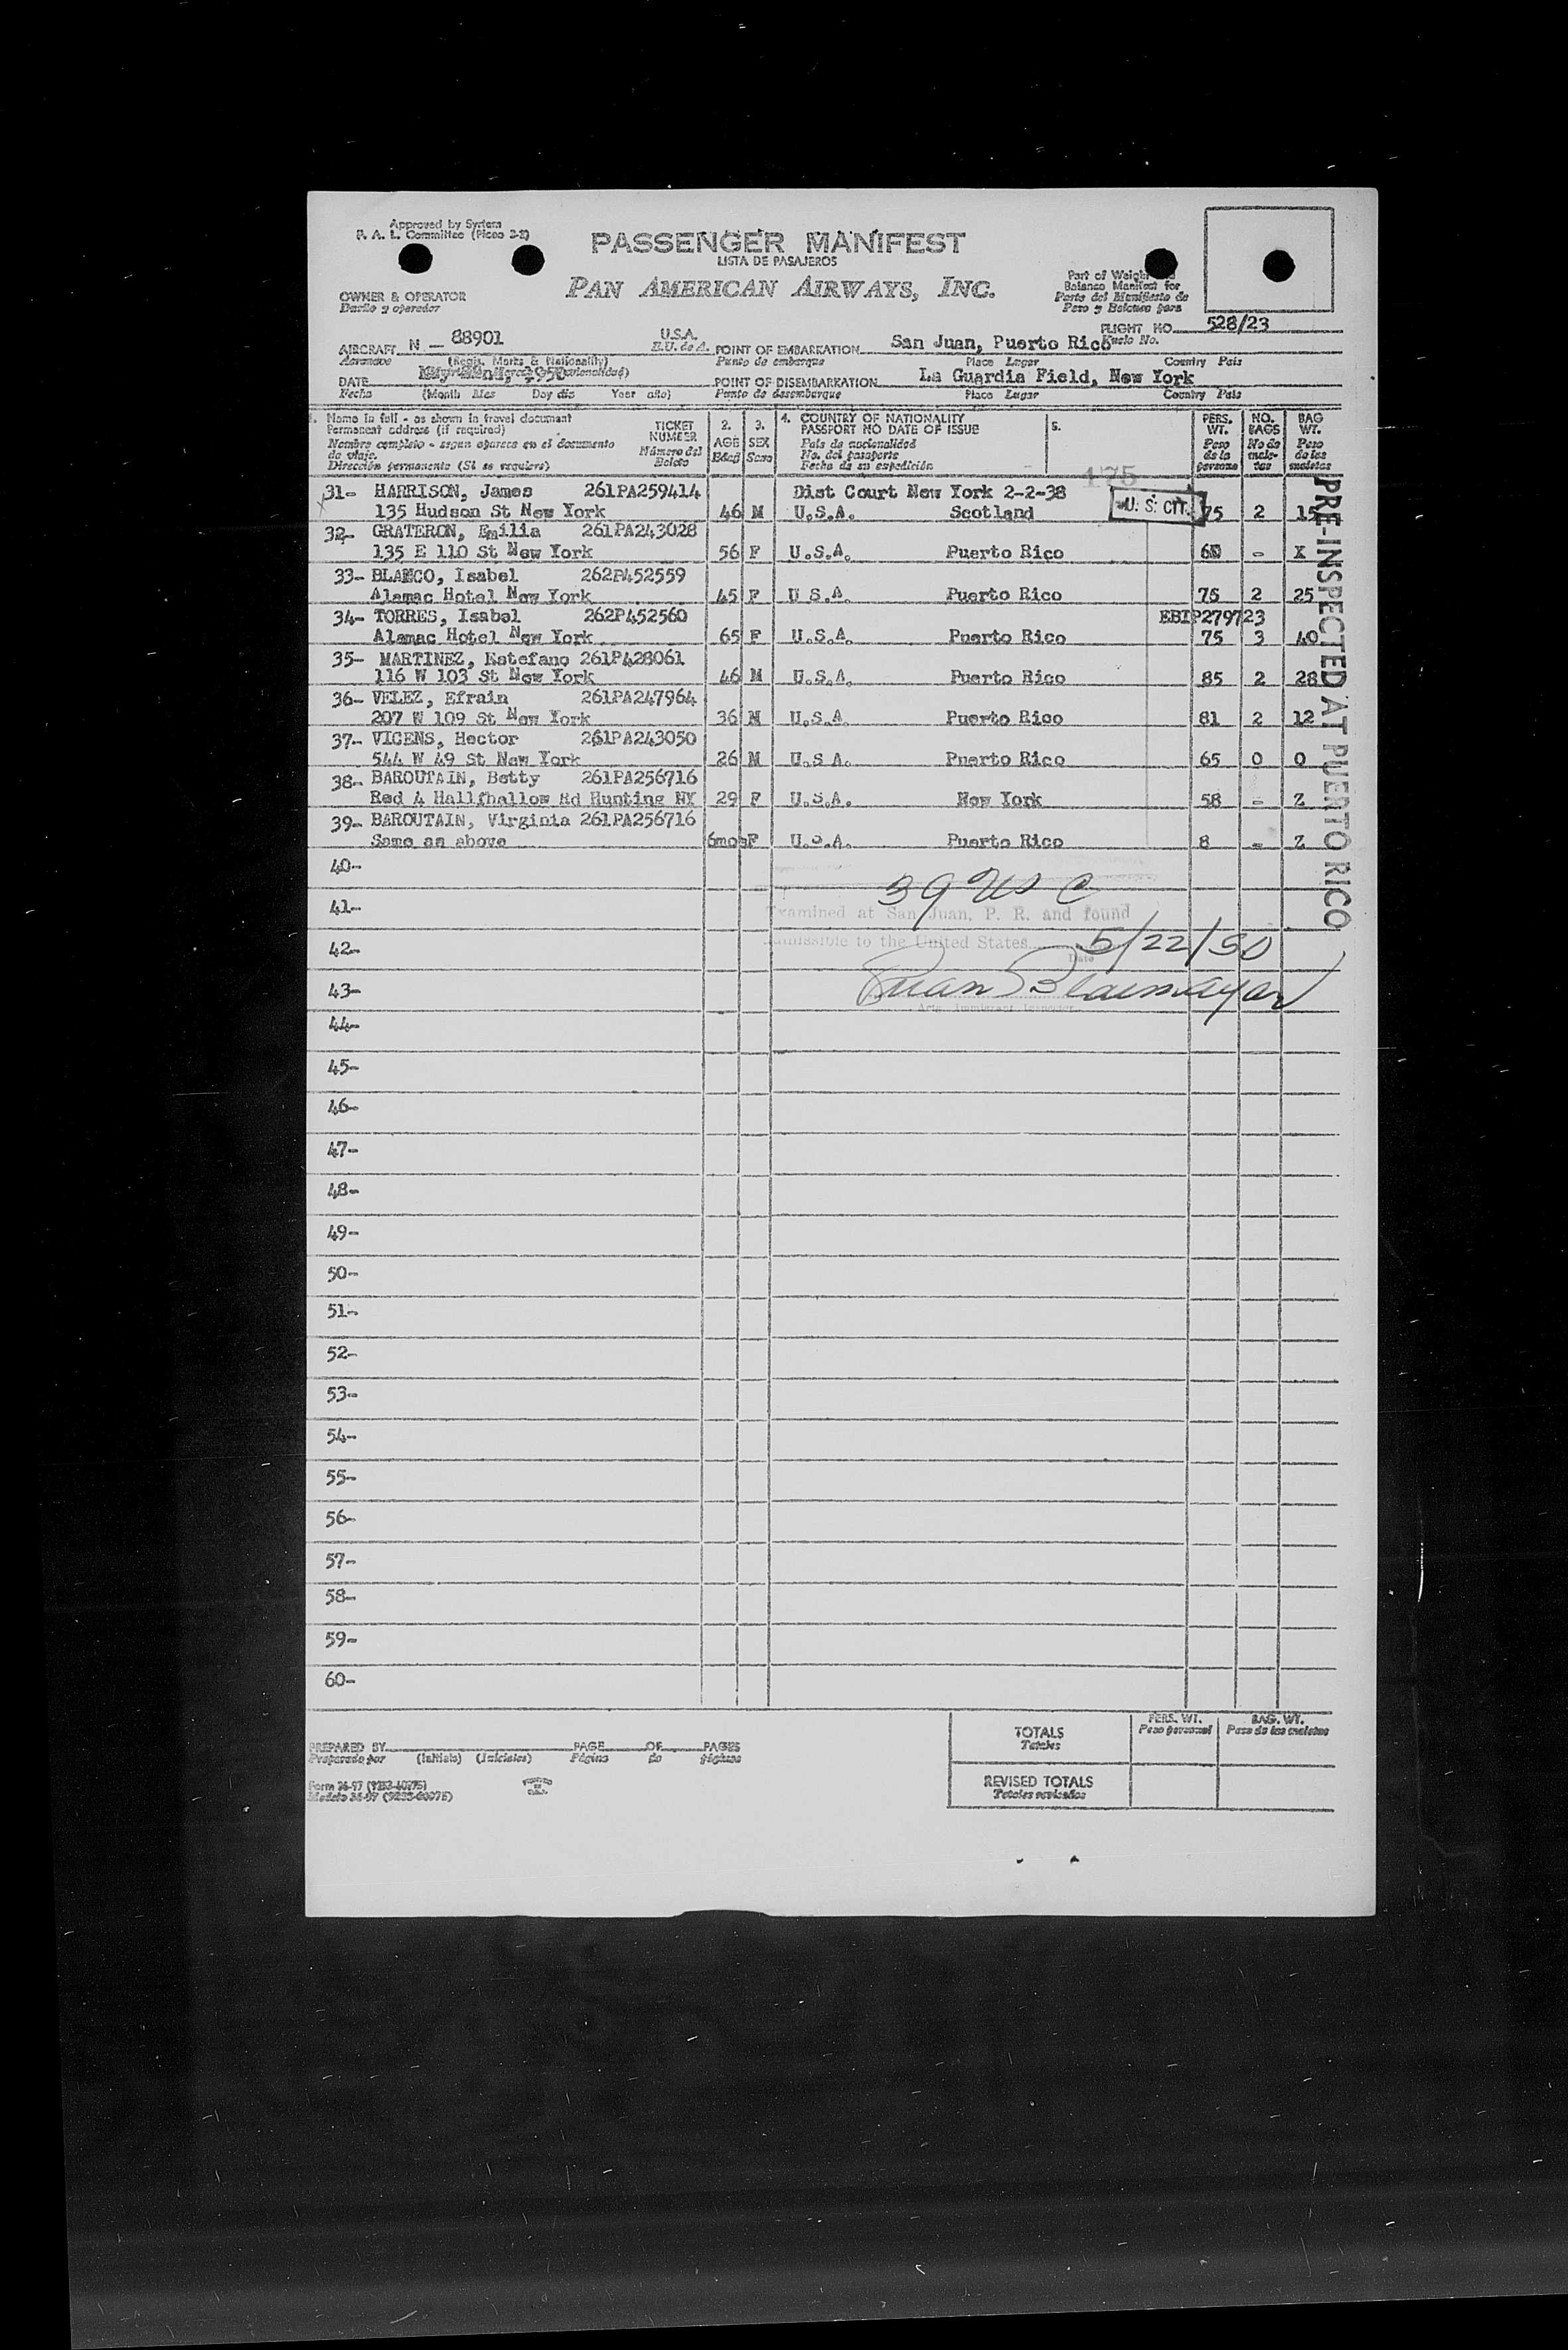 Approved by System
P. A. L. Committee (Picao 2-2)
PASSENGER MANIFEST
LISTA DE PASAJEROS
PAN AMERICAN AIRWAYS, INC.
OWNER & OPERATOR
Dueño y operador
Part of Weight
Balance Manifest for
Parte del Manifiesto de
Peso y Balance para
FLIGHT NO. 528/23
Vuelo No.
AIRCRAFT N - 88901 U.S.A.
Aeronave (Regis. Marks & Nationality) E.U. de A.
POINT OF EMBARKATION San Juan, Puerto Rico
Punto de embarque Place Lugar Country Pais
DATE
Fecha (Month Mes Day dia Year año)
POINT OF DISEMBARKATION La Guardia Field, New York
Punto de desembarque Place Lugar Country Pais
1. Name in full - as shown in travel document
Permanent address (if required)
Nombre completo - segun aparece en el documento
de viaje.
Dirección permanente (Si se requiere)
TICKET
NUMBER
Número del
Boleto
2.
AGE
Edad
3.
SEX
Sexo
4. COUNTRY OF NATIONALITY
PASSPORT NO DATE OF ISSUE
Pais de nacionalidad
No. del pasaporte
Fecha de su expedición
5.
PERS.
WT.
Peso
de la
persona
NO.
BAGS
No de
male-
tas
BAG
WT.
Peso
de las
maletas
175
31- HARRISON, James 261PA259414 Dist Court New York 2-2-38
135 Hudson St New York 46 M U.S.A. Scotland U. S. CIT. 75 2 15
32- GRATERON, Emilia 261PA243028
135 E 110 St New York 56 F U.S.A. Puerto Rico 60 - X
33- BLANCO, Isabel 262P452559
Alamac Hotel New York 45 F U S.A. Puerto Rico 75 2 25
34- TORRES, Isabel 262P452560 EBIP279723
Alamac Hotel New York 65 F U.S.A. Puerto Rico 75 3 40
35- MARTINEZ, Estefano 261P428061
116 W 103 St New York 46 M U.S.A. Puerto Rico 85 2 28
36- VELEZ, Efrain 261PA247964
207 W 109 St New York 36 M U.S.A Puerto Rico 81 2 12
37- VICENS, Hector 261PA243050
544 W 49 St New York 26 M U.S A. Puerto Rico 65 0 0
38- BAROUTAIN, Betty 261PA256716
Red 4 Hallfhallow Rd Hunting NY 29 F U.S.A. New York 58 - Z
39- BAROUTAIN, Virginia 261PA256716
Same as above 6mos F U.S.A. Puerto Rico 8 - Z
PRE-INSPECTED AT PUERTO RICO
40-
39 US C
41-
Examined at San Juan, P. R. and found
42-
admissible to the United States 5/22/50
Date
43-
44-
45-
46-
47-
48-
49-
50-
51-
52-
53-
54-
55-
56-
57-
58-
59-
60-
PREPARED BY PAGE OF PAGES
Preparado por (Initials) (Iniciales) Página de páginas
Form 36-97 (9283-40275)
TOTALS
Totales
PERS. WT.
Peso personal
BAG. WT.
Peso de las maletas
REVISED TOTALS
Totales revisados